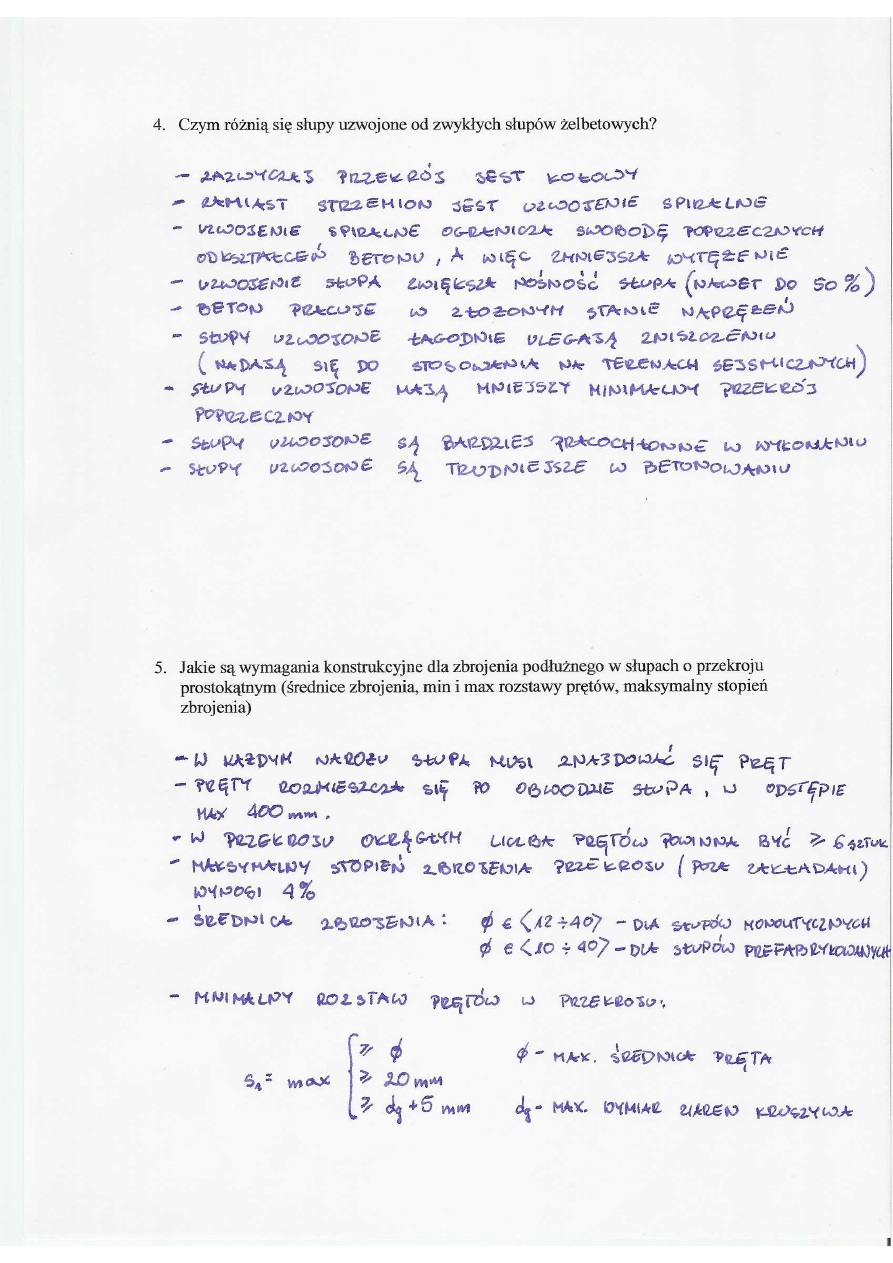 4. Czym różnią się słupy uzwojone od zwykłych słupów żelbetowych?
- ZAZWYCZAJ PRZEKRÓJ JEST KOŁOWY
- ZAMIAST STRZEMION JEST UZWOJENIE SPIRALNE
- UZWOJENIE SPIRALNE OGRANICZA SWOBODĘ POPRZECZNYCH
ODKSZTAŁCEŃ BETONU, A WIĘC ZMNIEJSZA WYTĘŻENIE
- UZWOJENIE SŁUPA ZWIĘKSZA NOŚNOŚĆ SŁUPA (NAWET DO 50%)
- BETON PRACUJE W ZŁOŻONYM STANIE NAPRĘŻEŃ
- SŁUPY UZWOJONE ŁAGODNIE ULEGAJĄ ZNISZCZENIU
(NADAJĄ SIĘ DO STOSOWANIA NA TERENACH SEJSMICZNYCH)
- SŁUPY UZWOJONE MAJĄ MNIEJSZY MINIMALNY PRZEKRÓJ
POPRZECZNY
- SŁUPY UZWOJONE SĄ BARDZIEJ PRACOCHŁONNE W WYKONANIU
- SŁUPY UZWOJONE SĄ TRUDNIEJSZE W BETONOWANIU
5. Jakie są wymagania konstrukcyjne dla zbrojenia podłużnego w słupach o przekroju
prostokątnym (średnice zbrojenia, min i max rozstawy prętów, maksymalny stopień
zbrojenia)
- W KAŻDYM NAROŻU SŁUPA MUSI ZNAJDOWAĆ SIĘ PRĘT
- PRĘTY ROZMIESZCZA SIĘ PO OBWODZIE SŁUPA, W ODSTĘPIE
MAX 400 mm.
- W PRZEKROJU OKRĄGŁYM LICZBA PRĘTÓW POWINNA BYĆ ≥ 6 SZTUK
- MAKSYMALNY STOPIEŃ ZBROJENIA PRZEKROJU (POZA ZAKŁADAMI)
WYNOSI 4%
- ŚREDNICA ZBROJENIA: ϕ ∈ <12÷40> - DLA SŁUPÓW MONOLITYCZNYCH
ϕ ∈ <10÷40> - DLA SŁUPÓW PREFABRYKOWANYCH
- MINIMALNY ROZSTAW PRĘTÓW W PRZEKROJU:
≥ ϕ ϕ - MAX. ŚREDNICA PRĘTA
S₁ = max ≥ 20 mm
≥ dg + 5 mm dg - MAX. WYMIAR ZIAREN KRUSZYWA